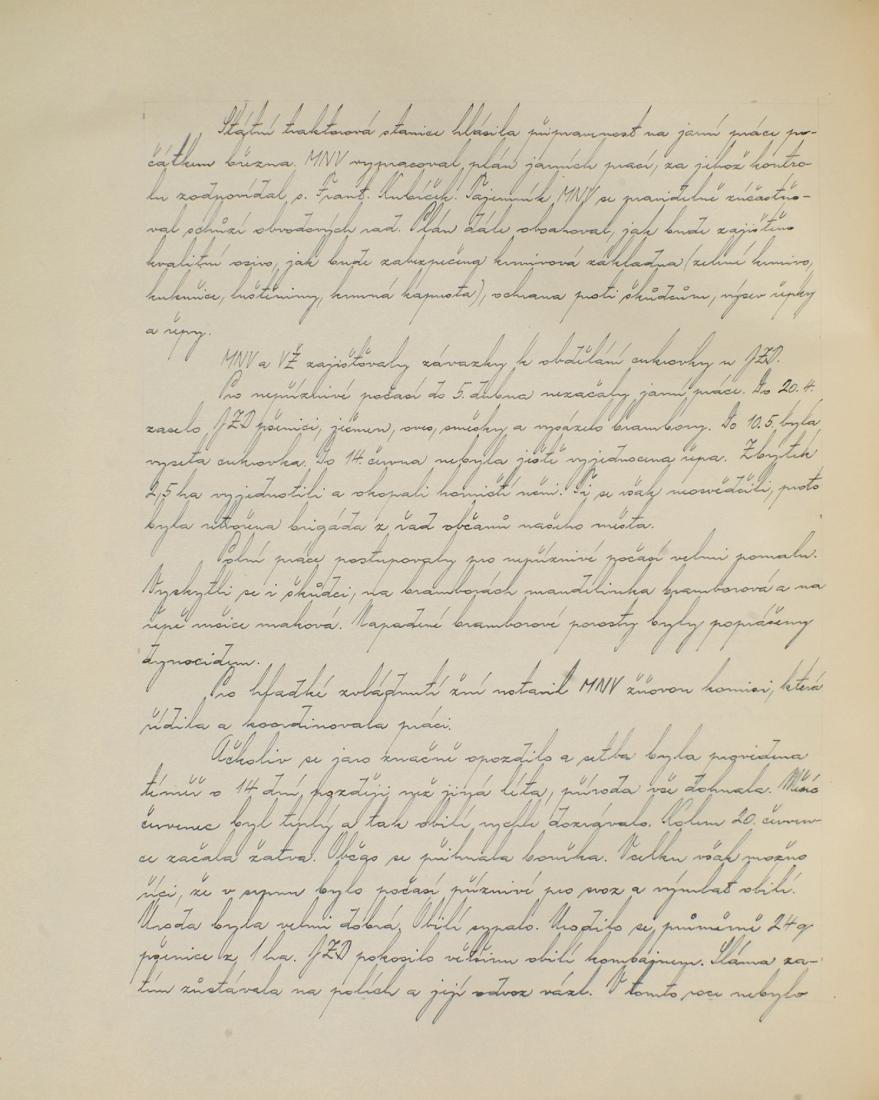 Státní traktorová stanice hlásila připravenost na jarní práce po-
čátkem března. MNV vypracoval plán jarních prací, za jehož kontro-
lu zodpovídal s. Frant. Kubíček. Tajemník MNV se pravidelně zúčastňo-
val schůzí obvodových rad. Plán dále obsahoval, jak bude zajištěno
kvalitní osivo, jak bude zabezpečena krmivová základna (zelené krmivo,
kukuřice, luštěniny, krmná kapusta), ochrana proti škůdcům, výsev řepky
a řepy.
MNV a VŽ zajišťovaly závazky k obdělání cukrovky u JZD.
Pro nepříznivé počasí do 5. dubna nezačaly jarní práce. Do 20. 4.
zaselo JZD pšenici, ječmen, oves, směsky a vysázelo brambory. Do 10. 5. byla
vyseta cukrovka. Do 14. června nebyla ještě vyjednocena řepa. Zbytek
2,5 ha vyjednotili a okopali horničtí učni. Ti se však neosvědčili, proto
byla utvořena brigáda z řad občanů našeho města.
Polní práce postupovaly pro nepříznivé počasí velmi pomalu.
Vyskytli se i škůdci, na bramborách mandelinka bramborová a na
řepě mšice maková. Napadené bramborové porosty byly popráseny
dynocidem.
Pro hladké zvládnutí žní ustavil MNV žňovou komisi, která
řídila a koordinovala práci.
Ačkoliv se jaro značně opozdilo a setba byla provedena
téměř o 14 dní později než jiná léta, příroda vše dohnala. Měsíc
červenec byl teplý a tak obilí rychle dozrávalo. Kolem 20. červen-
ce začala žatva. Občas se přihnala bouřka. Vcelku však možno
říci, že v srpnu bylo počasí příznivé pro svoz a výmlat obilí.
Úroda byla velmi dobrá. Obilí sypalo. Urodilo se průměrně 24 q
pšenice z 1 ha. JZD pokosilo většinu obilí kombajnem. Sláma za-
tím zůstávala na polích a její odvoz vázl. V tomto roce nebylo